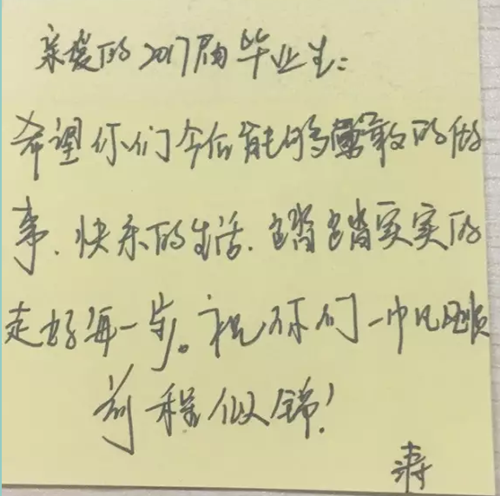 亲爱的2017届毕业生:
希望你们今后能够敢的做
事、快乐的生活、踏踏实实的
走好每一步。祝你们一帆风顺
前程似锦!